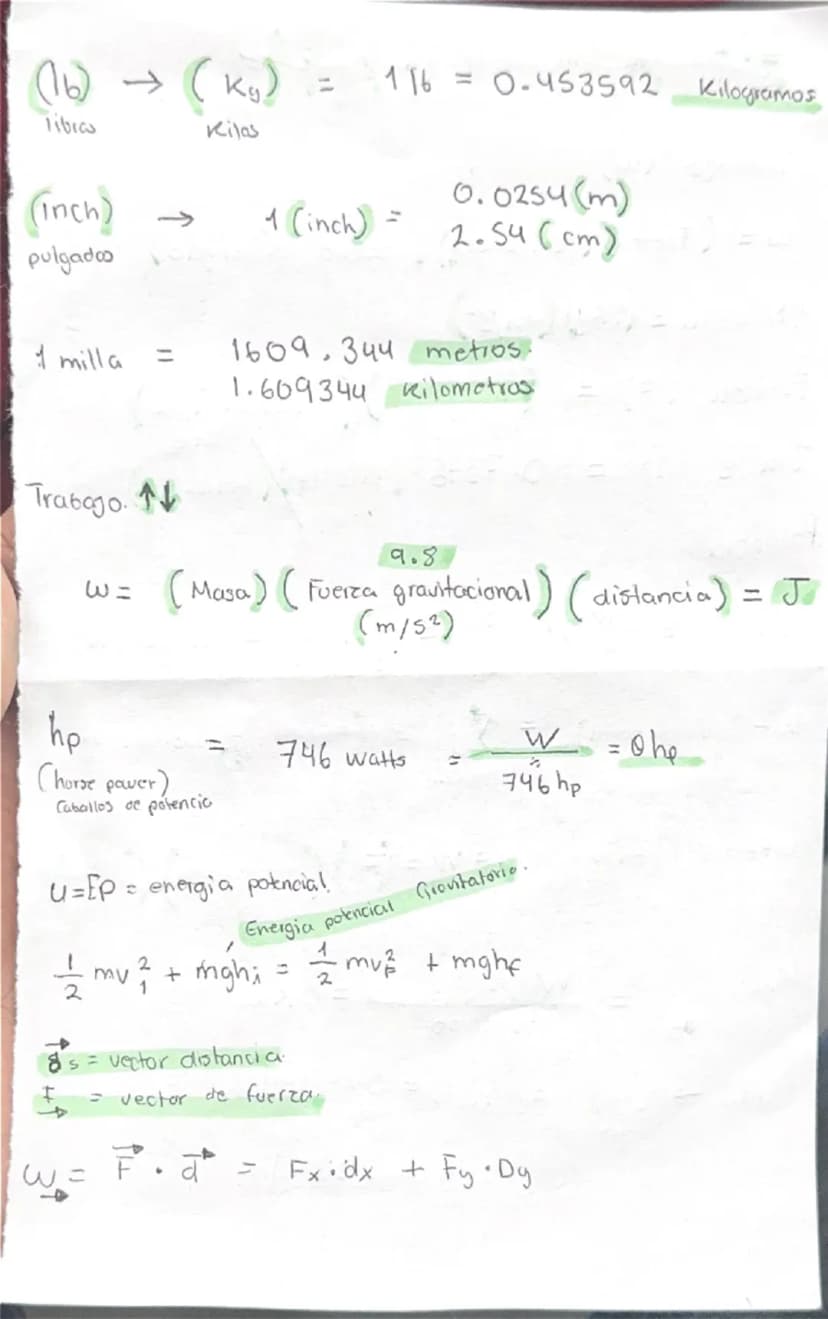 (lb) → (Kg) = 1 lb = 0.453592 Kilogramos
libras Kilos
(inch) → 1 (inch) = 0.0254 (m)
pulgadas 2.54 (cm)
1 milla = 1609.344 metros.
1.609344 Kilometros
Trabajo. ↑↓
9.8
w = (Masa) (Fuerza gravitacional) (distancia) = J
(m/s²)
hp = 746 watts = W / 746 hp = θ hp
(horse power)
Caballos de potencia
U=Ep = energia potncial.
Energia potencial Gravitatorio.
1/2 mv₁² + mghᵢ = 1/2 mv_F² + mgh_f
→
s = vector distancia.
F = vector de fuerza.
→
w = F⃗ · d⃗ = Fx · dx + Fy · Dy